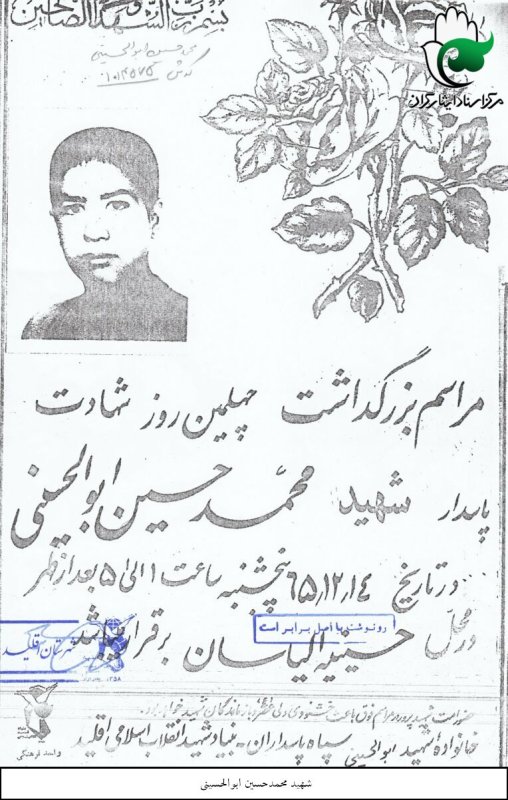 بسم رب الشهداء و الصالحین
محمد حسین ابوالحسینی
مرکز اسناد ایثارگران
مراسم بزرگداشت چهلمین روز شهادت
پاسدار شهید محمد حسین ابوالحسینی
در تاریخ ۶۵٫۱۲٫۱۴ پنجشنبه ساعت ۱ الی ۵ بعد از ظهر
در محل حسینیه الیاسان برقرار میباشد
رونوشت با اصل برابر است
شهرستان اقلید
۱۳۵۸
حضور امت شهید پرور در مراسم فوق باعث خشنودی ولی عصر و بازماندگان شهید خواهد بود.
خانواده شهید ابوالحسینی سپاه پاسداران - بنیاد شهید انقلاب اسلامی اقلید
واحد فرهنگی
شهید محمدحسین ابوالحسینی